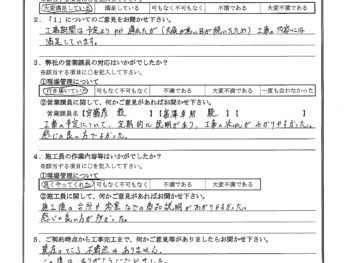 大変満足している 満足している 可もなく不可もなく 不満である 大変不満である
２．「１」についてのご意見をお聞かせ下さい。
工事期間は予定より少し 遅れたが (天候が悪い日が続いたため) 工事の内容には
満足しています。
３．弊社の営業課員の対応はいかがでしたか？
※該当する項目に○を記入して下さい。
①現場管理について
行き届いていた 可もなく不可もなく 不満である 大変不満である 一度も会わなかった
②営業課員に関して、何かご意見があればお聞かせ下さい。
営業課員名【 殿 】【 殿 】
工事の予定について、定期的に説明があり、工事の流れが わかりやすかった。
感じの良い方でよかった。
４．施工員の作業内容等はいかがでしたか？
※該当する項目に○を記入して下さい。
①現場管理について
良くやってくれた 可もなく不可もなく 不満である 大変不満である
②施工員に関して、何かご意見があればお聞かせ下さい。
施工後の 台所や 浴室 などの商品説明がわかりやすかった。
感じの良い方が多かった。
５．ご契約時点から工事完了まで、何かご意見等がありましたらお聞かせ下さい。
現在のところ 不満点は ありません。
この度は ありがとうございました。